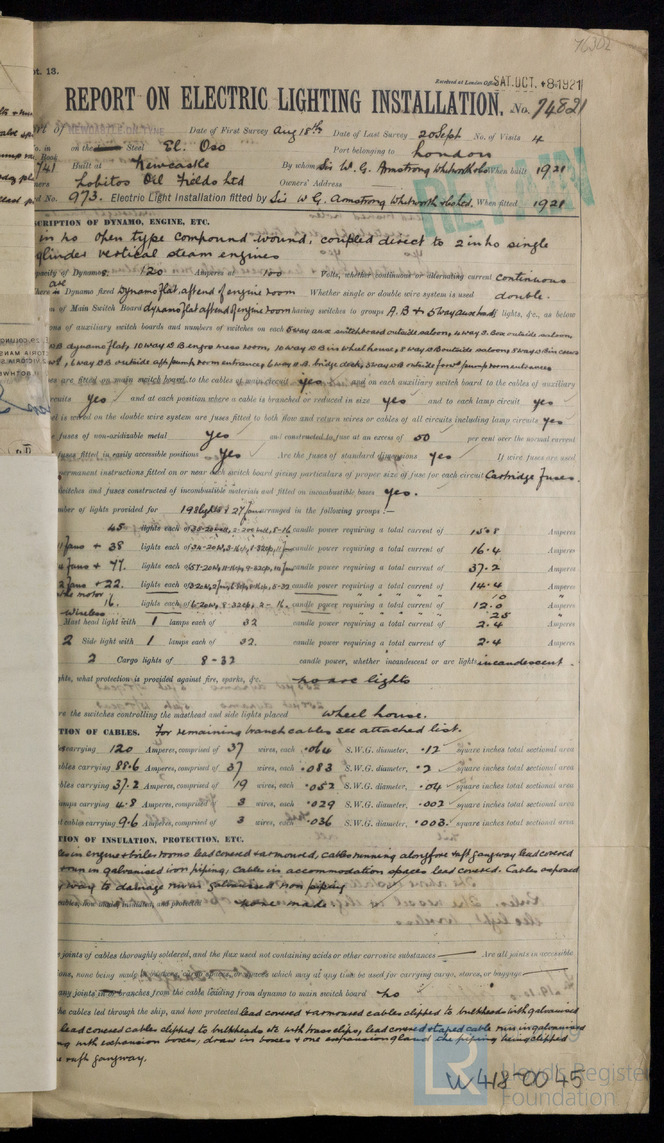 76302
pt. 13.
Received at London Office SAT. OCT. 8 1921
REPORT ON ELECTRIC LIGHTING INSTALLATION. No. 74821
of NEWCASTLE-ON-TYNE Date of First Survey Aug 18th Date of Last Survey 20 Sept No. of Visits 4
on the Steel El Oso Port belonging to London
Built at Newcastle By whom Sir W. G. Armstrong Whitworth When built 1921
Lobitos Oil Fields Ltd Owners' Address
No. 973. Electric Light Installation fitted by Sir W G. Armstrong Whitworth When fitted 1921
RETAIN
SCRIPTION OF DYNAMO, ENGINE, ETC.
in no open type compound wound, coupled direct to 2 in no single
cylinder vertical steam engines
pacity of Dynamo 120 Amperes at 100 Volts, whether continuous or alternating current continuous
here are Dynamo fixed Dynamo flat, aft end of engine room Whether single or double wire system is used double.
of Main Switch Board dynamo flat aft end of engine room having switches to groups A. B & 5 way aux board lights, &c., as below
ons of auxiliary switch boards and numbers of switches on each 6 way aux switchboard outside saloon, 4 way
dynamo flat, 10 way engrs mess room, 10 way in wheel house, 8 way outside saloon
, 6 way outside aft pump room entrance, 6 way bridge deck, 5 way outside forwd pump room entrance
are fitted on main switch board to the cables of main circuit yes and on each auxiliary switch board to the cables of auxiliary
rcuits yes and at each position where a cable is branched or reduced in size yes and to each lamp circuit yes
is wired on the double wire system are fuses fitted to both flow and return wires or cables of all circuits including lamp circuits yes
fuses of non-oxidizable metal yes and constructed to fuse at an excess of 50 per cent over the normal current
fuses fitted in easily accessible positions yes Are the fuses of standard dimensions yes If wire fuses are used
permanent instructions fitted on or near each switch board giving particulars of proper size of fuse for each circuit Cartridge fuses.
switches and fuses constructed of incombustible materials and fitted on incombustible bases yes.
mber of lights provided for 198 lights & 27 fans arranged in the following groups :—
45 lights each of candle power requiring a total current of 15.8 Amperes
fans + 38 lights each of candle power requiring a total current of 16.4 Amperes
fans + 77. lights each of candle power requiring a total current of 37.2 Amperes
2 fans + 22. lights each of candle power requiring a total current of 14.4 Amperes
motor " " " " 10 "
16. lights each of candle power requiring a total current of 12.0 Amperes
Wireless " " " " 25 "
Mast head light with 1 lamps each of 32 candle power requiring a total current of 2.4 Amperes
2 Side light with 1 lamps each of 32. candle power requiring a total current of 2.4 Amperes
2 Cargo lights of 8-32 candle power, whether incandescent or arc lights incandescent.
ghts, what protection is provided against fire, sparks, &c. no arc lights
re the switches controlling the masthead and side lights placed wheel house.
TION OF CABLES. For remaining branch cables see attached list.
carrying 120 Amperes, comprised of 37 wires, each .064 S.W.G. diameter, .12 square inches total sectional area
bles carrying 88.6 Amperes, comprised of 37 wires, each .083 S.W.G. diameter, .2 square inches total sectional area
bles carrying 37.2 Amperes, comprised of 19 wires, each .052 S.W.G. diameter, .04 square inches total sectional area
amps carrying 4.8 Amperes, comprised of 3 wires, each .029 S.W.G. diameter, .002 square inches total sectional area
cables carrying 9.6 Amperes, comprised of 3 wires, each .036 S.W.G. diameter, .003 square inches total sectional area
TION OF INSULATION, PROTECTION, ETC.
les in engine & boiler rooms lead covered & armoured, cables running along fore & aft gangway lead covered
& run in galvanised iron piping, Cables in accommodation spaces lead covered. Cables exposed
to damage run in galvanised iron piping
cables, how made, insulated, and protected none made
joints of cables thoroughly soldered, and the flux used not containing acids or other corrosive substances — Are all joints in accessible
ons, none being made in bunkers, cargo spaces, or spaces which may at any time be used for carrying cargo, stores, or baggage —
any joints in or branches from the cable leading from dynamo to main switch board no
he cables led through the ship, and how protected lead covered & armoured cables clipped to bulkheads with galvanised
lead covered cables clipped to bulkheads etc with brass clips, lead covered & taped cable run in galvanised
ng with expansion boxes, draw in boxes & one expansion gland the piping being clipped
re & aft gangway.
W418-0045
LR
Lloyd's Register
Foundation